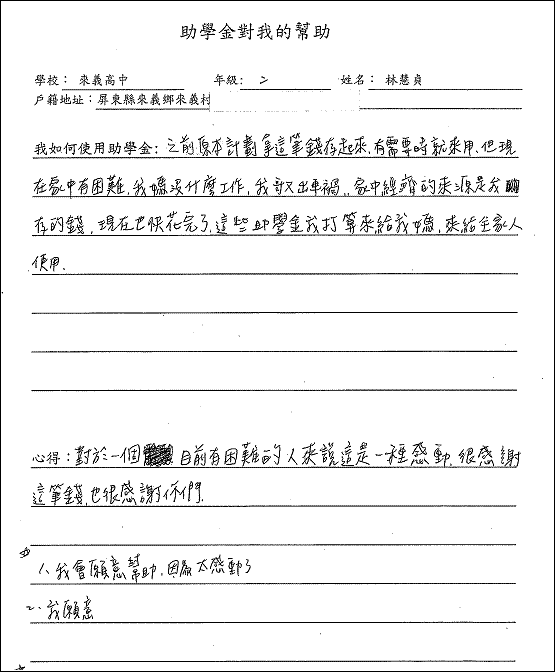 助學金對我的幫助
學校： 來義高中 年級: 二 姓名： 林慧貞
戶籍地址：屏東縣來義鄉來義村
我如何使用助學金: 之前原本計劃拿這筆錢存起來,有需要時就來用、但現
在家中有困難,我媽沒什麼工作,我哥又出車禍,,家中經濟的來源是我
存的錢,現在也快花完了,這些助學金我打算來給我媽,來給全家人
使用.
心得：對於一個目前有困難的人來說這是一種感動,很感謝
這筆錢,也很感謝你們.
1、我會願意幫助,因為太感動了
2、我願意